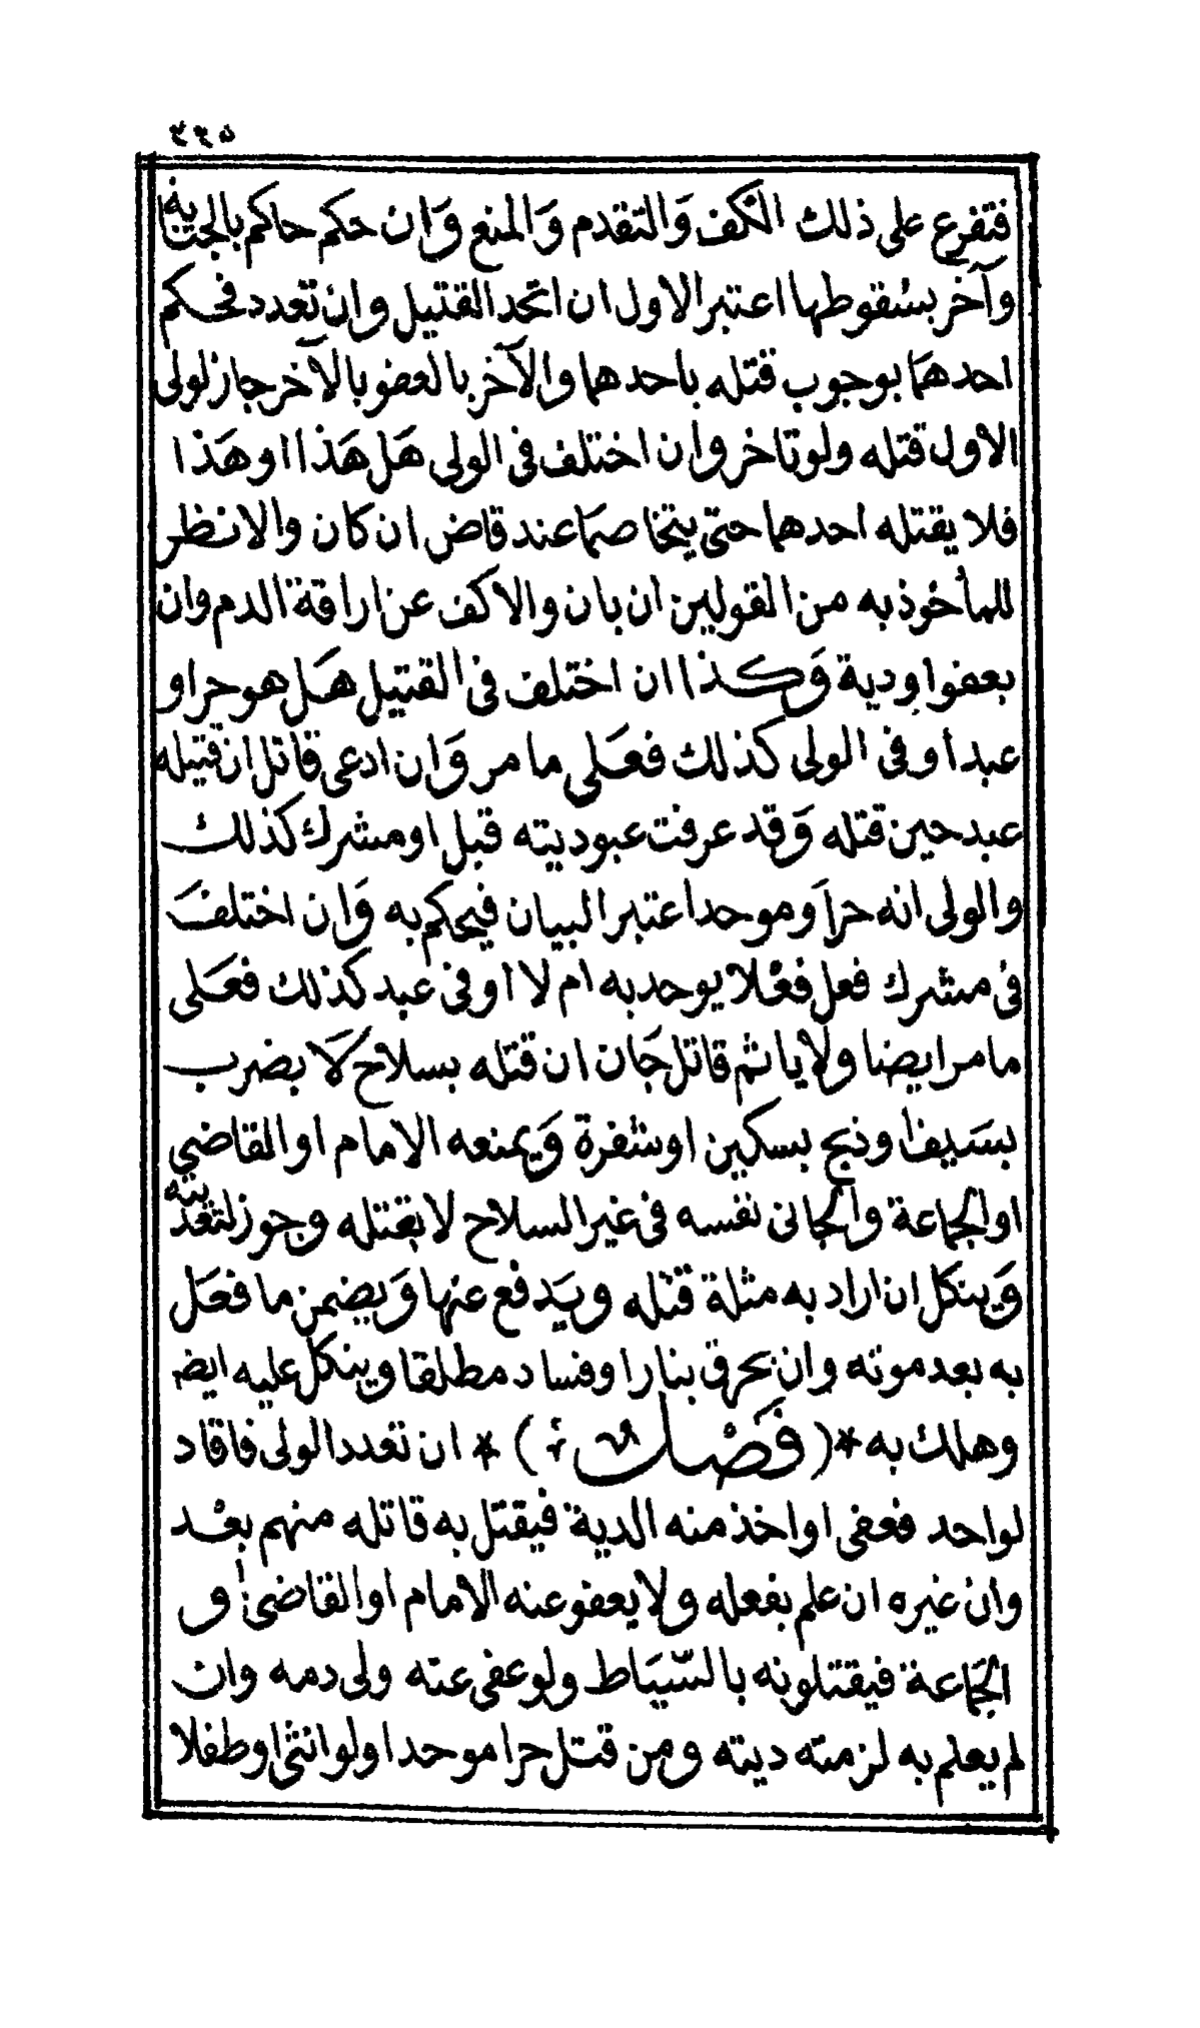 ٣٢٥
فتفرع على ذلك الكف وَالتقدم وَالمنع وَان حكم حاكم بالجناية
وآخر بسُقوطها اعتبر الاول ان اتحد القتيل وان تعدد فحكم
احدهمَا بوجوب قتله باحدهما والآخر بالعفو بالآخر جاز لولى
الاول قتله ولو تاخر وان اختلف فى الولى هَل هَذا او هَذا
فلا يقتله احدهما حتى يتخاصمَا عند قاض ان كان والا نظر
للمأخوذ به من القولين ان بان والا كف عن اراقة الدم وان
بعفو او دية وَكذا ان اختلف فى القتيل هَل هو حر او
عبد أو فى الولى كذلك فعَلى ما مر وَان ادعى قاتل ان قتيله
عبد حين قتله وَقد عرفت عبوديته قبل او مشرك كذلك
والولى انه حر اَو موحد اعتبر البيان فيحكم به وَان اختلفَ
فى مشرك فعل فعْلا يوحد به ام لا او فى عبد كذلك فعَلى
ما مر ايضا ولا ياثم قاتل جَان ان قتله بسلاح لَا بضرب
بسَيف وذبح بسكين او شفرة وَيمنعه الامام او القاضي
او الجماعة والجانى نفسه فى غير السلاح لا بقتله وجوز لتعديته
وَينكل ان اراد به مثلة قتله ويَدفع عنها وَيضمن ما فعَل
به بعد موته وان بحرق بنار او فساد مطلقا وينكل عليه ايضا
وهلك به * ( فَصْل ) * ان تعدد الولى فاقاد
لواحد فعفى او اخذ منه الدية فيقتل به قاتله منهم بعْد
وان غيره ان علم بفعله ولا يعفو عنه الامام او القاضى او
الجمَاعة فيقتلونه بالسّيَاط ولو عفى عنه ولى دمه وان
لم يعلم به لزمته ديته ومن قتل حرا موحدا ولو انثى او طفلا